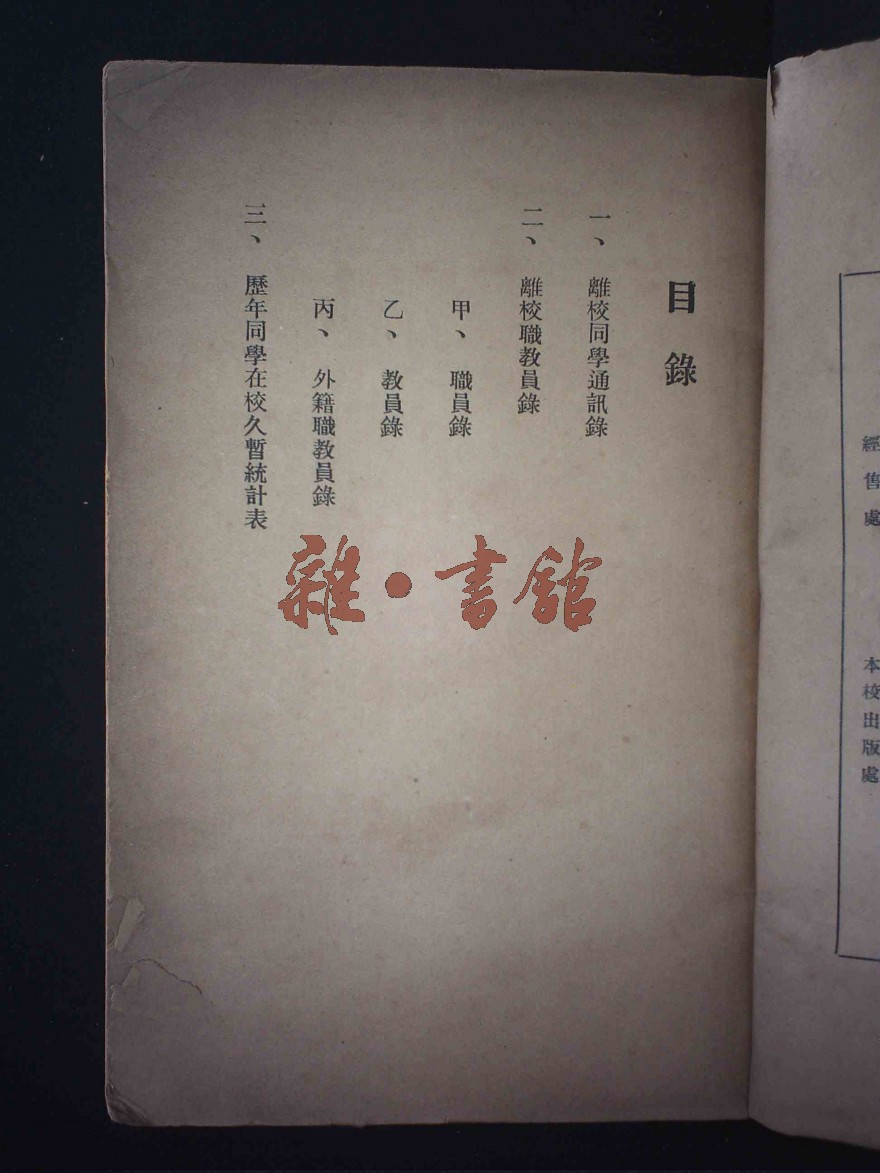 經售處 本校出版處
目錄
一、離校同學通訊錄
二、離校職教員錄
甲、職員錄
乙、教員錄
丙、外籍職教員錄
三、歷年同學在校久暫統計表
雜·書館